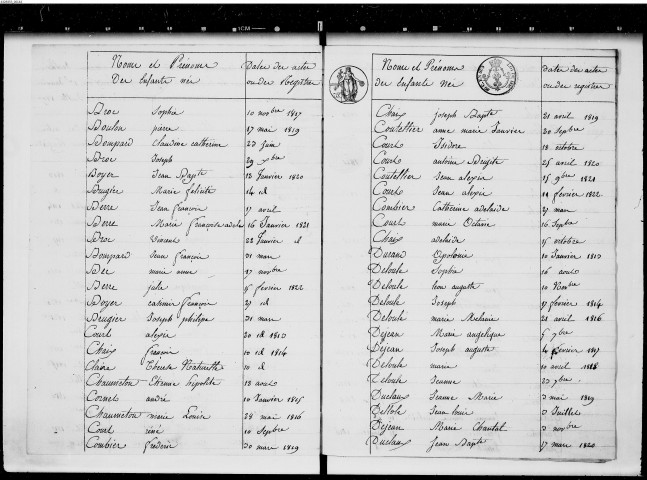 Noms et Prénoms Des Enfants nés
Dates des actes ou des Registres
Broc Sophie 10 novbre 1817
Boulon pierre 17 mai 1819
Bompard Claudine catherine 27 juin
Broc Joseph 29 xbre
Boyer Jean Bapte 18 Janvier 1820
Brugier Marie felicité 14 id
Berre Jean françois 17 avril
Berre Marie françoise adele 16 Janvier 1821
Broc Vincent 22 Janvier d
Bompard Jean françois 31 mars
Ber marie anne 17 novbre
Berre julie 15 fevrier 1822
Boyer casimir françois 27 id
Brugier Joseph philipe 31 mars
Court alexis 20 id 1813
Chaix françois 10 id 1814
Claire Therese 10 d
Chaumeton Etienne hipolite 18 aout
Cornet andré 10 Janvier 1815
Chaumeton marie Louise 28 mai 1816
Court réné 10 Septbre
Combier frederic 30 mars 1819
Noms et Prénoms des Enfants Nés
Dates des actes ou des registres
Chaix joseph Bapte 21 avril 1819
Coutellier anne marie Janvier 20 Sepbre
Court Isidore 18 octobre
Court antoine 25 avril 1820
Coutellier Jean alexis 15 9bre 1821
Court Jean alexis 14 fevrier 1822
Combier Catherine adelaide 27 mars
Court marie Octavie 16 Sepbre
Chaix adelaide 15 octobre
Durand Apolonie 10 Janvier 1813
Deloule Sophie 16 aout
Deloule leon auguste 10 Novbre
Deloule Joseph 27 fevrier 1814
Deloule marie Melanie 21 avril 1816
Dejean Marie angelique 5 9bre
Dejean Joseph auguste 4 fevrier 1817
Deloule marie 10 avril 1818
Deloule Jeanne 20 9bre
Duclaux Jeanne Marie 3 mai 1819
Jean louis 3 Juillet
Dejean Marie Chantal 3 novbre
Duclaux Jean Bapte 17 mars 1820